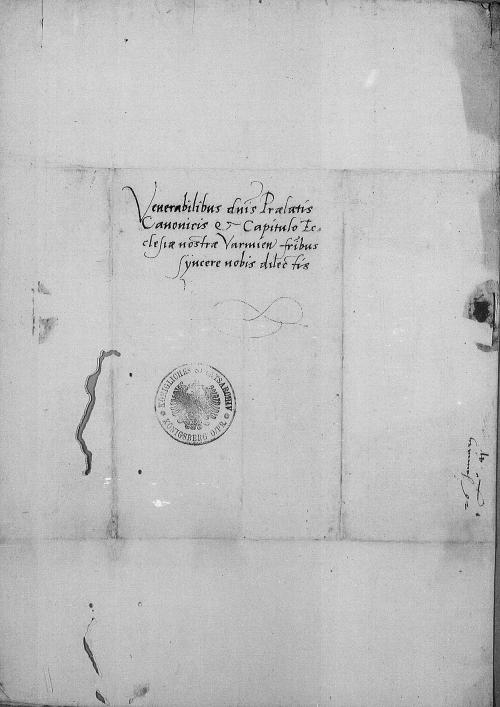 Venerabilibus dnis Prælatis
Canonicis & Capitulo Ec-
clesiæ nostræ Varmien fribus
syncere nobis dilectis
KÖNIGLICHES STAATSARCHIV
KÖNIGSBERG O/PR.